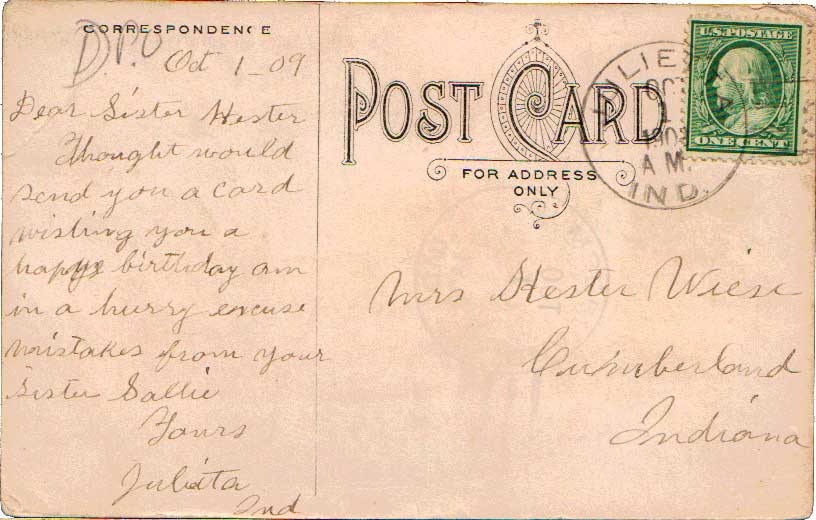 CORRESPONDENCE
D.P.O
Oct 1-09
Dear Sister Hester
Thought would
send you a card
wishing you a
happy birthday am
in a hurry excuse
mistakes from your
Sister Sallie
Yours
Julieta
Ind
POST CARD
FOR ADDRESS
ONLY
JULIETTA
OCT
1
1909
A M.
IND.
U.S. POSTAGE
ONE CENT
Mrs Hester Wiese
Cumberland
Indiana